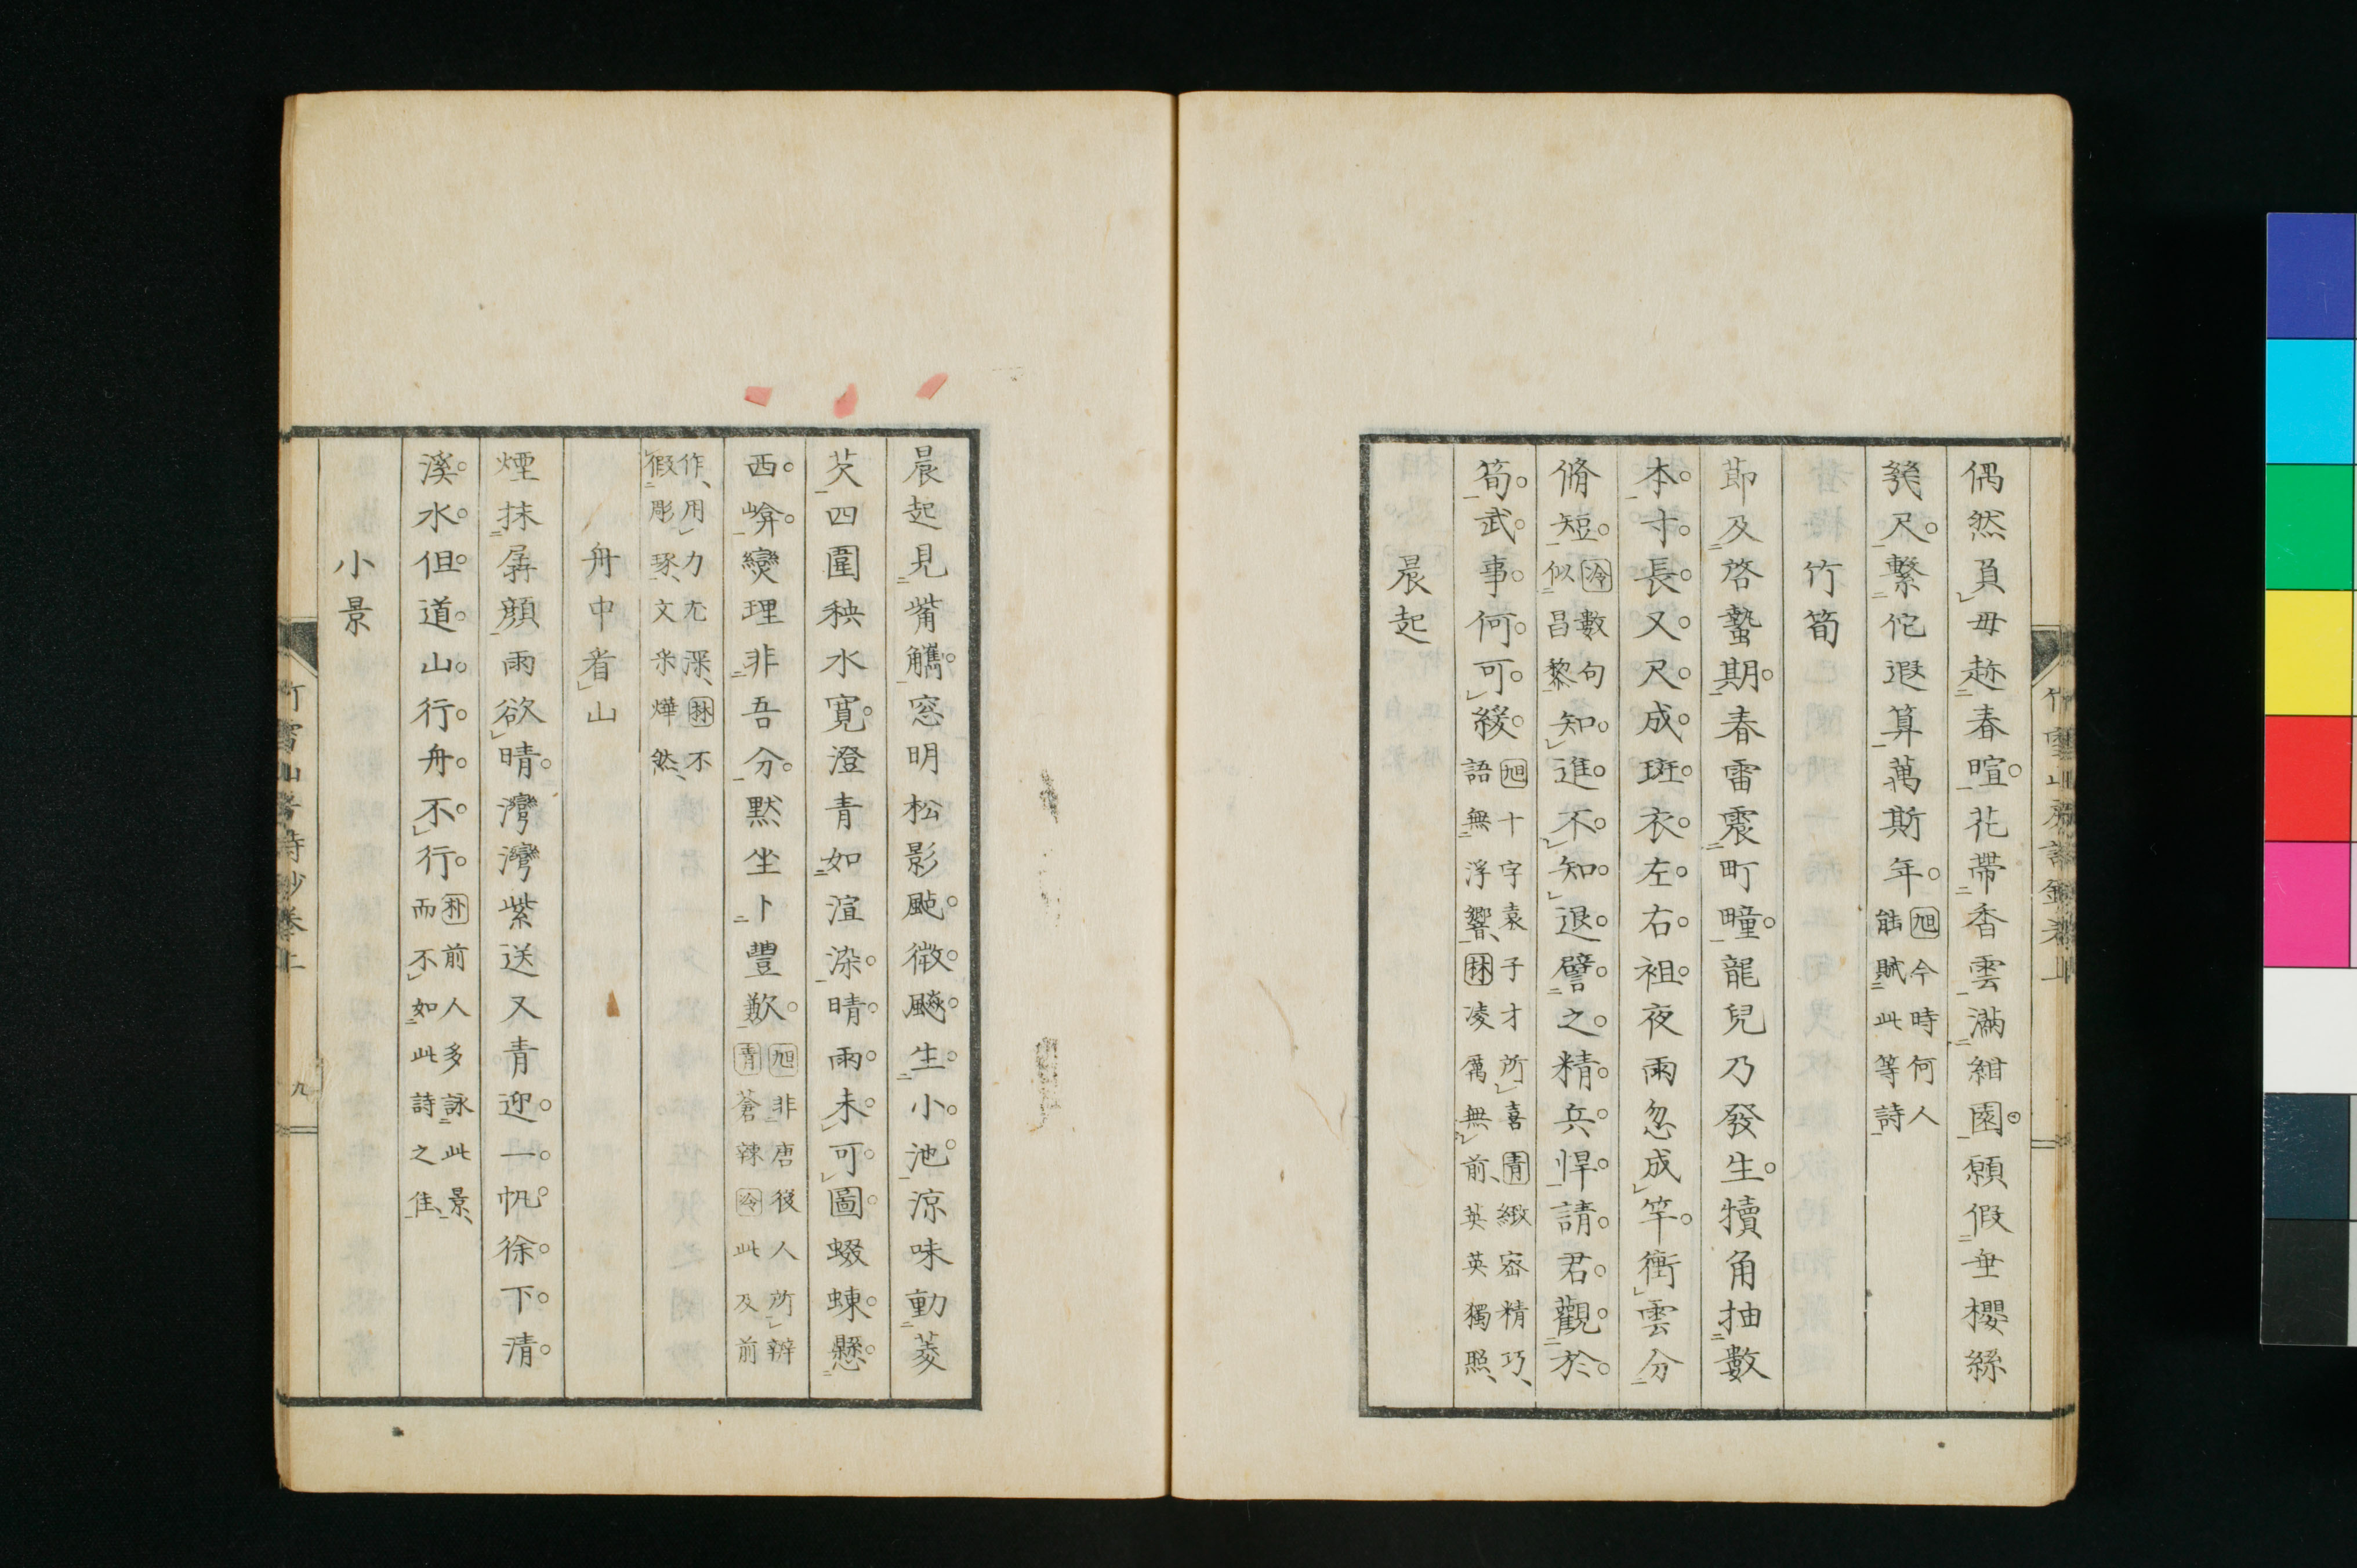 偶然負毋趂春暄花帶香雲滿紺園願假垂櫻絲
幾尺繫佗遐算萬斯年旭今時何人能賦此等詩
竹筍
節及啓蟄期春雷震町疃龍兒乃發生犢角抽數
本寸長又尺成斑衣左右袒夜雨忽成竿衝雲分
脩短冷數句似昌黎知進不知退譬之精兵悍請君觀於
筍武事何可緩旭十字袁子才所喜青緻密精巧語無浮響林凌厲無前英英獨照
晨起
晨起見觜觿窓明松影颭微颸生小池涼味動菱
芡四圍秧水寬澄青如渲染晴雨未可圖蝃蝀懸
西崦燮理非吾分默坐卜豐歉旭非唐後人所辦青蒼辣冷此及前
作用力尤深林不假彫琢文采燁然
舟中看山
煙抹孱顏雨欲晴灣灣紫送又青迎一帆徐下清
溪水但道山行舟不行林前人多詠此景而不如此詩之佳
小景
九